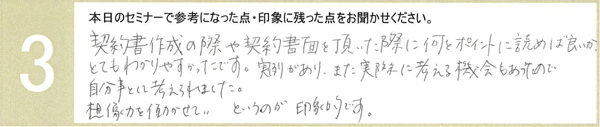 3
本日のセミナーで参考になった点・印象に残った点をお聞かせください。
契約書作成の際や契約書面を頂いた際に何をポイントに読めば良いか、
とてもわかりやすかったです。実例があり、また実際に考える機会もあったので
自分事として考えられました。
想像力を働かせて、、というのが印象的です。